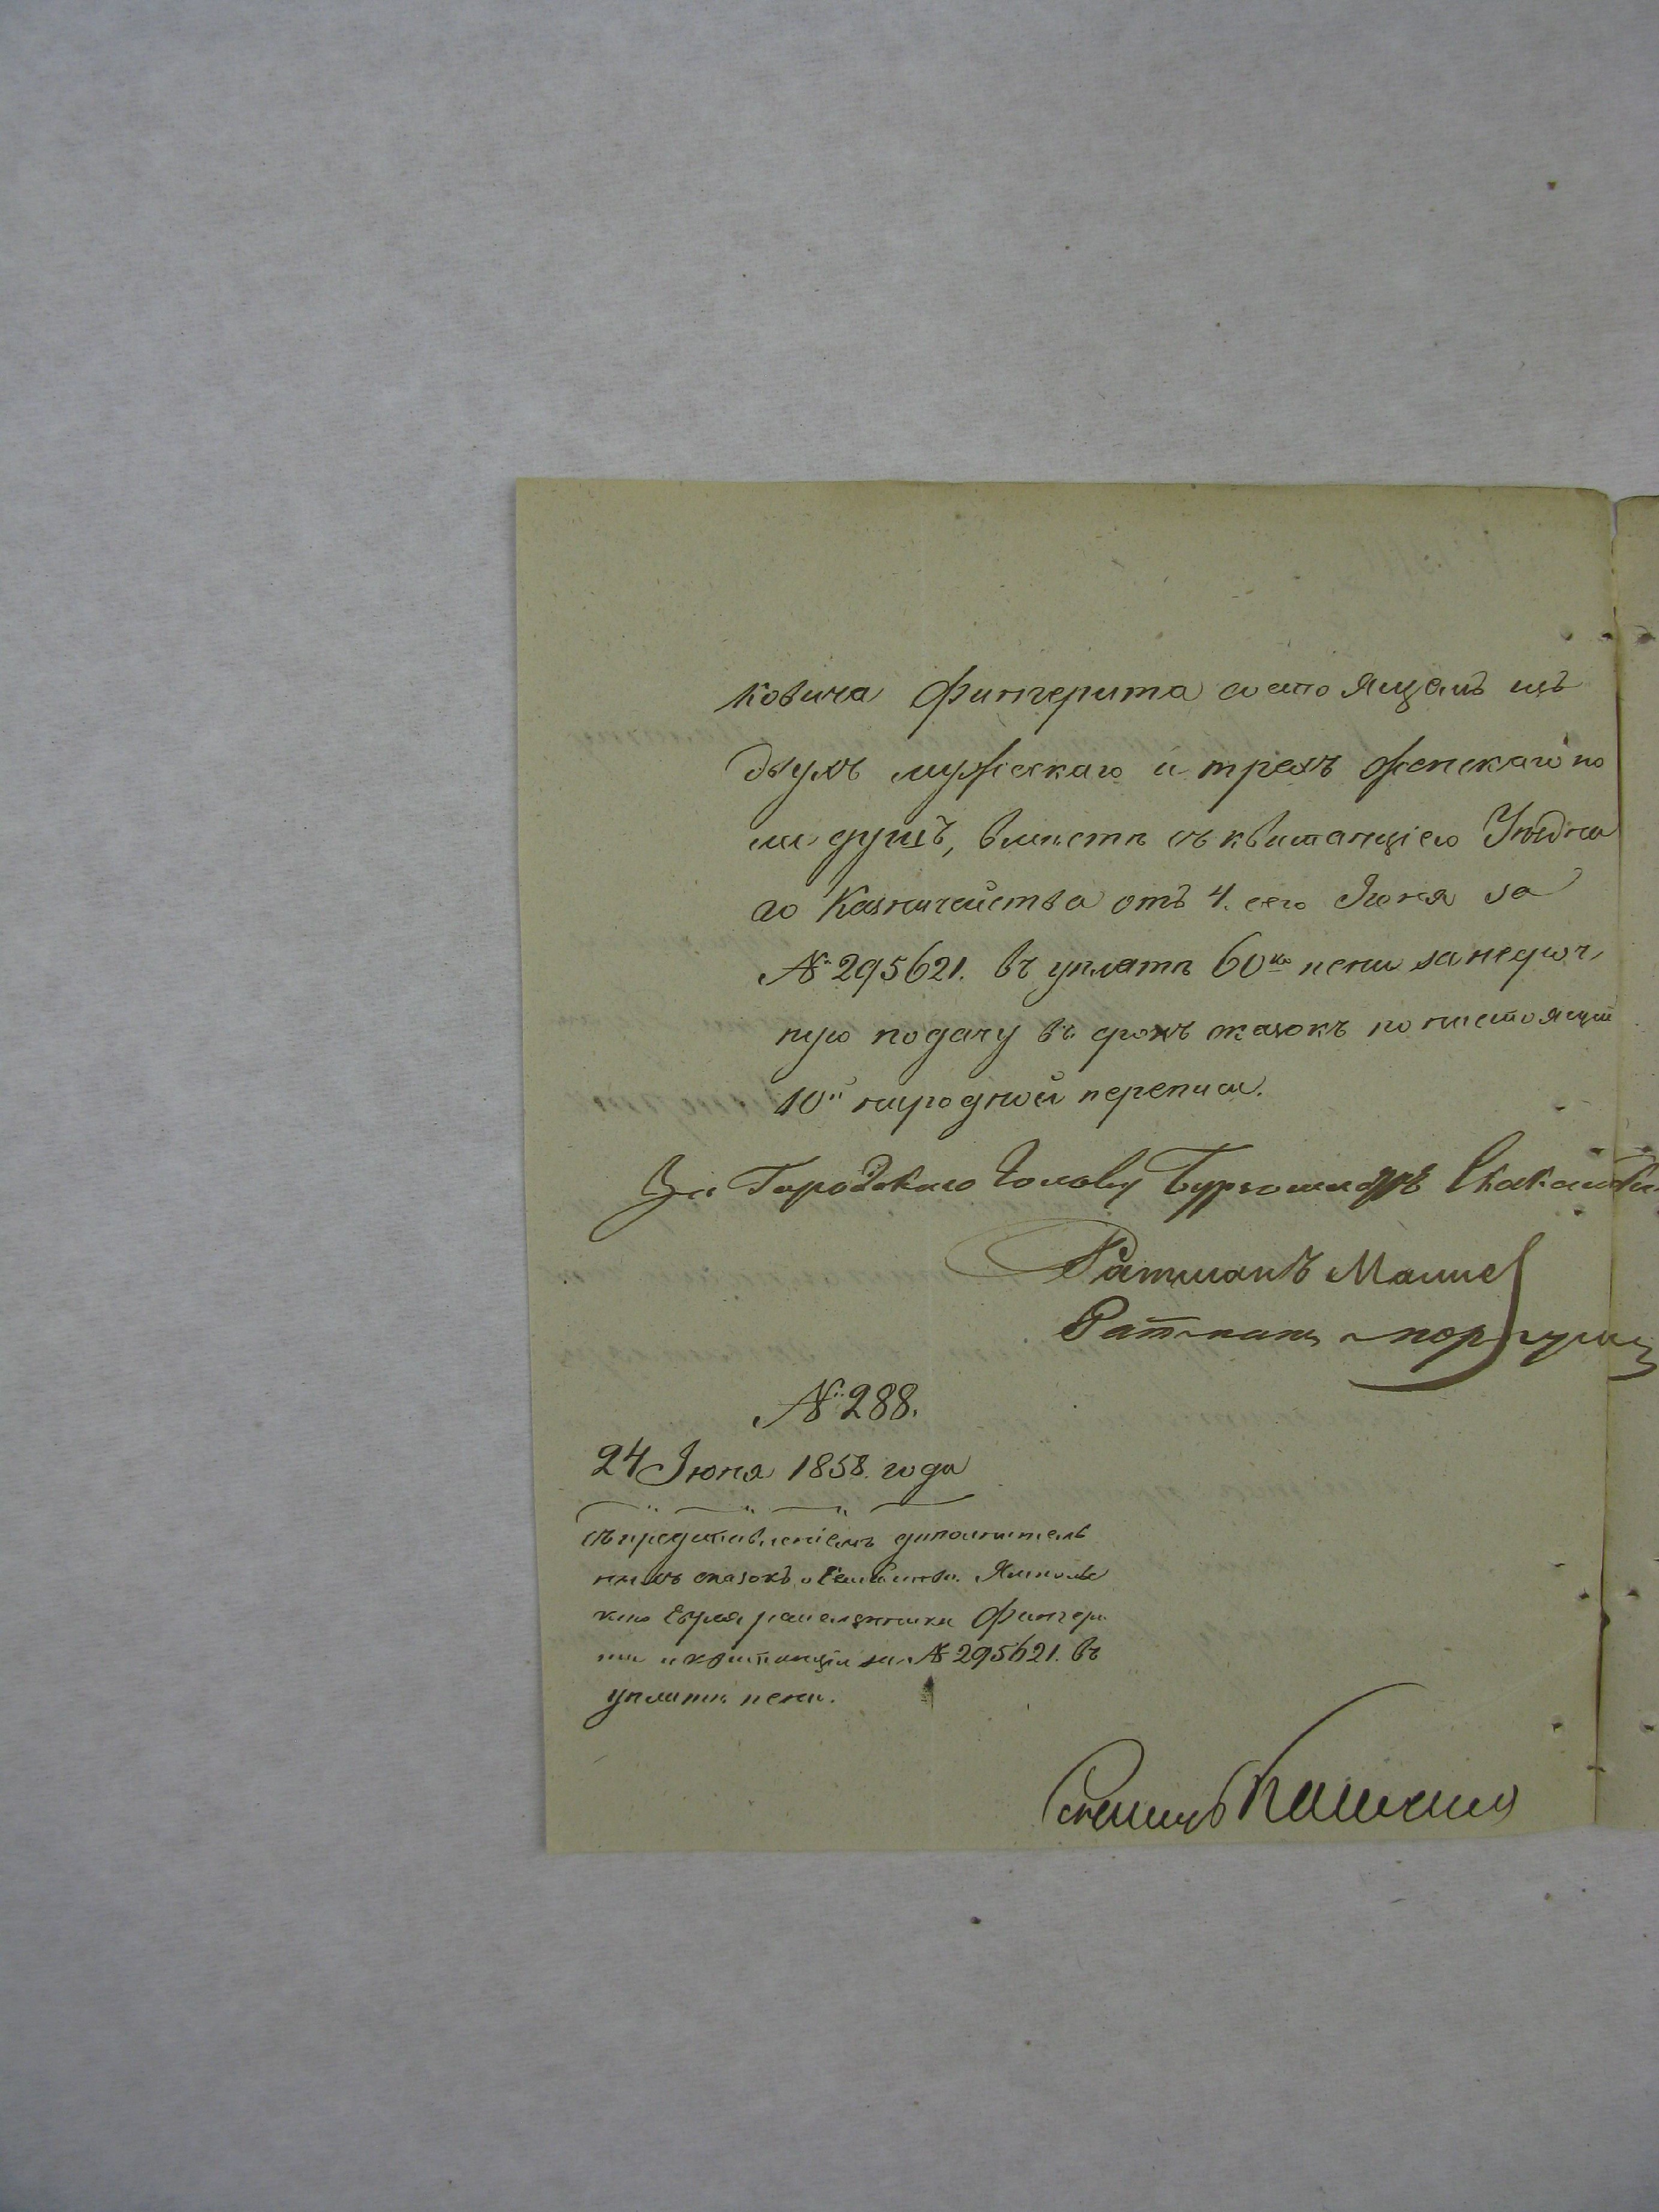 ковича Фингерита состоящемъ изъ
двухъ мужескаго и трехъ женскаго по
ла душъ, вместѣ съ квитанціею Уѣздна
го Казначейства отъ 4. сего Іюня за
№ 295621. въ уплатѣ 60 ко пени за недоч
ную подачу въ срокъ сказокъ по настоящей
10й народной переписи.
За Городскаго Голову Бургомистръ
Ратманъ
Ратманъ
№ 288.
24 Іюня 1858. года
съ представленіемъ дополнитель
ныхъ сказокъ о Семействѣ Ямполь
скаго Еврея Фингери
та и квитанціи за № 295621. въ
уплатѣ пени.